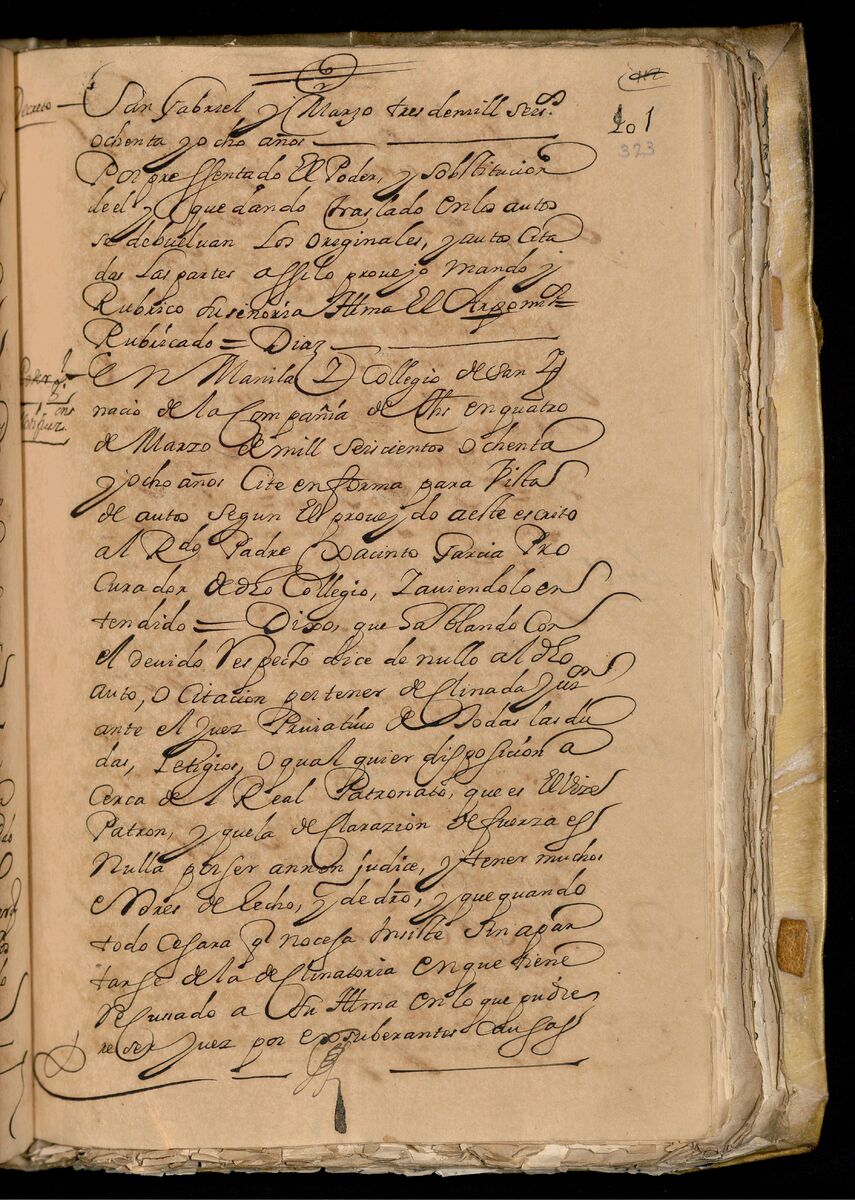 112
201
323
Decreto
San Gabriel y Marzo tres de mill seis.os
ochenta y ocho años
Por pressentado El Poder, y sobstitucion
de el y quedando traslado en los autos
se debueluan Los originales, y autos Cita
das Las partes assi lo proveyo mando y
Rubrico su señoria Ilma El Arzobpo =
Rubricado = Diaz
En Manila Collegio de San Ig
nacio de la Compañia de Ihs en quatro
de Marzo de mill seiscientos Ochenta
y ocho años Cite en forma para Vista
de autos segun El proveydo a este escrito
al Rdo Padre Xacinto Garcia Pro
Curador de dho Collegio, Y auiendolo en
tendido = Dixo, que hablando Con
el deuido respecto dice de nullo al dho
auto, o Citacion por tener declinada Jur.on
ante el Juez Priuatiuo de todas las du
das, Letigios, o qual quier disposicion a
Cerca de el Real Patronato, que es El Vize
Patron, y que la declarazion de fuerza es
Nulla por ser a non judice, y tener muchos
errores de hecho, y de dro, y que quando
todo Cesara q. no cesa Insiste sin apar
tarse de la declinatoria en que tiene
recusado a Su Illma en lo que pudie
re ser Juez por exsuberantes Causas